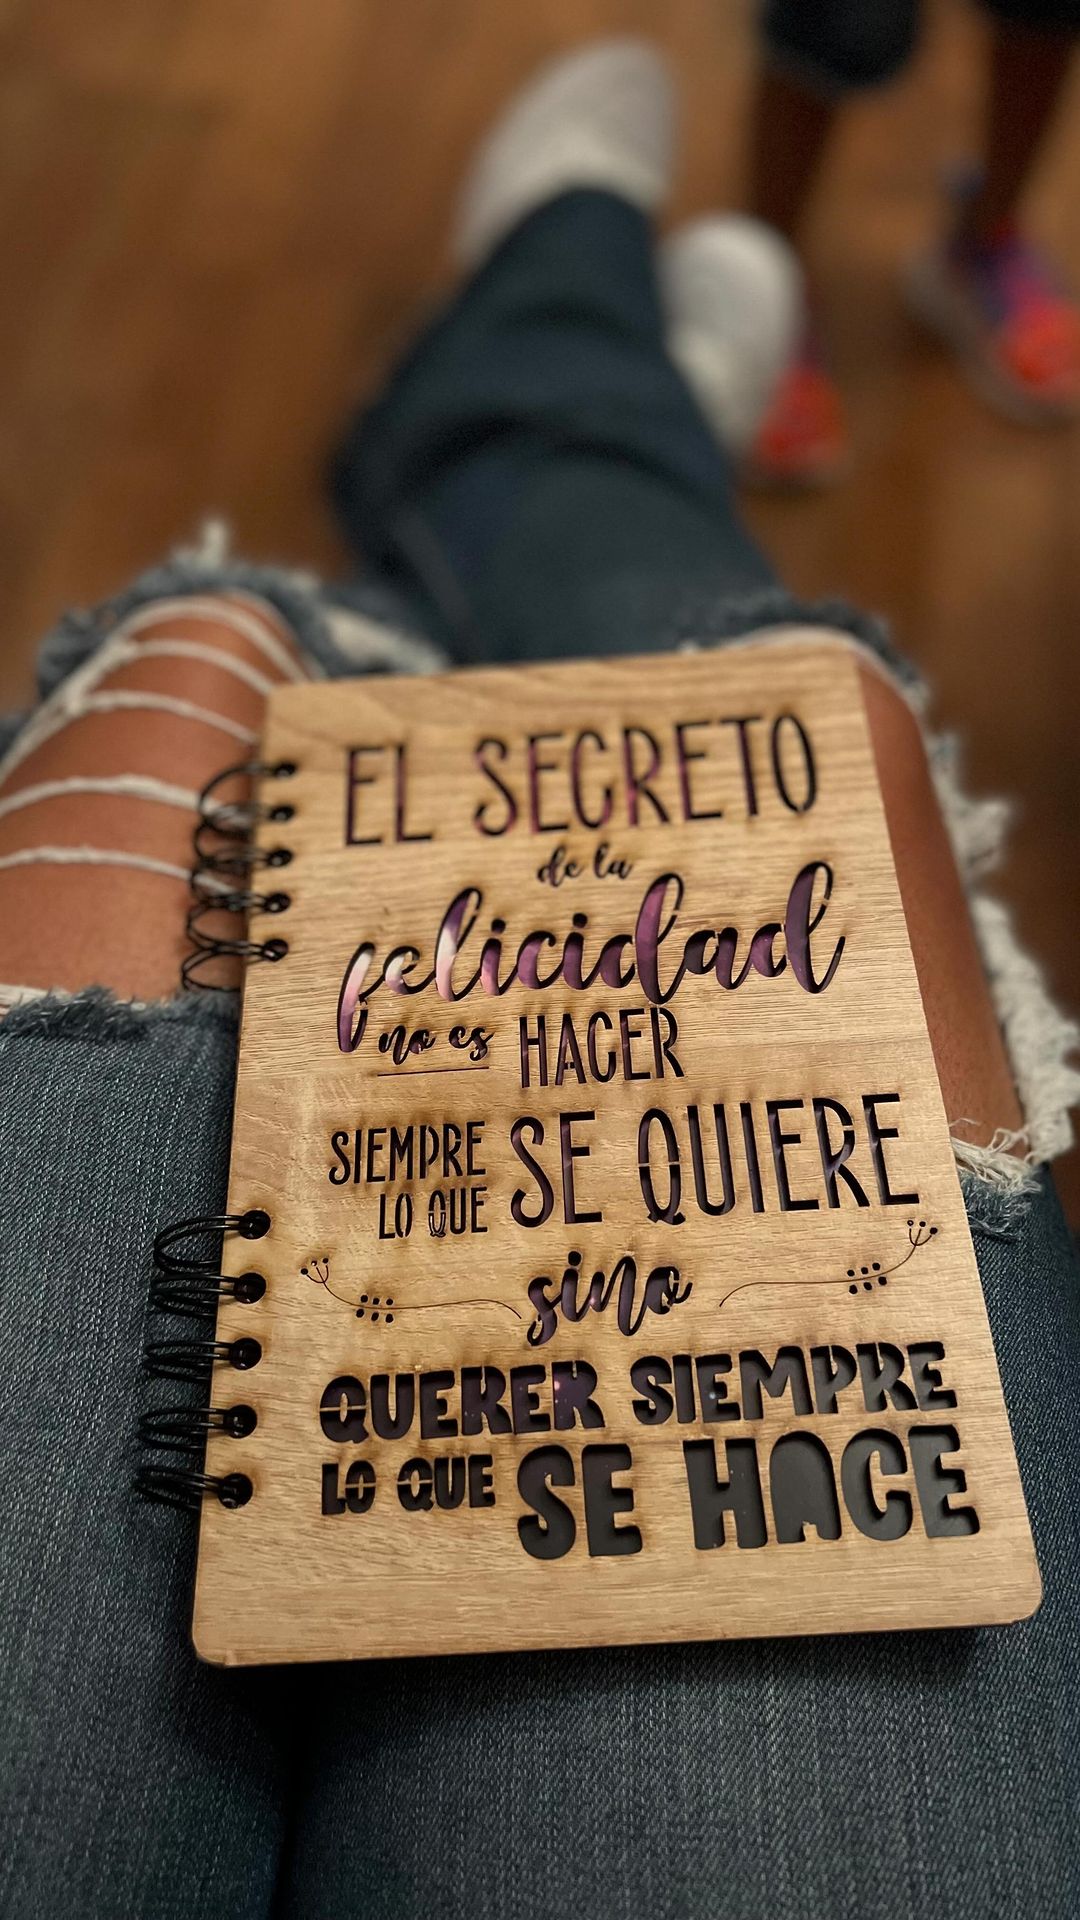 EL SECRETO
de la
felicidad
no es HACER
SIEMPRE
LO QUE SE QUIERE
sino
QUERER SIEMPRE
LO QUE SE HACE